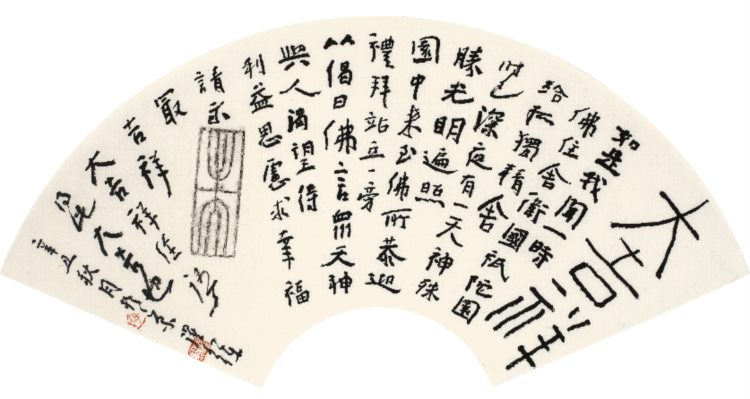 大吉祥
如是我聞一時
佛住舍衛國祇陀園
给孤獨精舍
时已深夜有一天神殊
勝光明遍照
園中来至佛所恭迎
禮拜站立一旁
以偈曰佛言眾天神
與人渴望待
利益思慮求幸福
請示
最
吉祥
大吉祥经
辛丑秋月